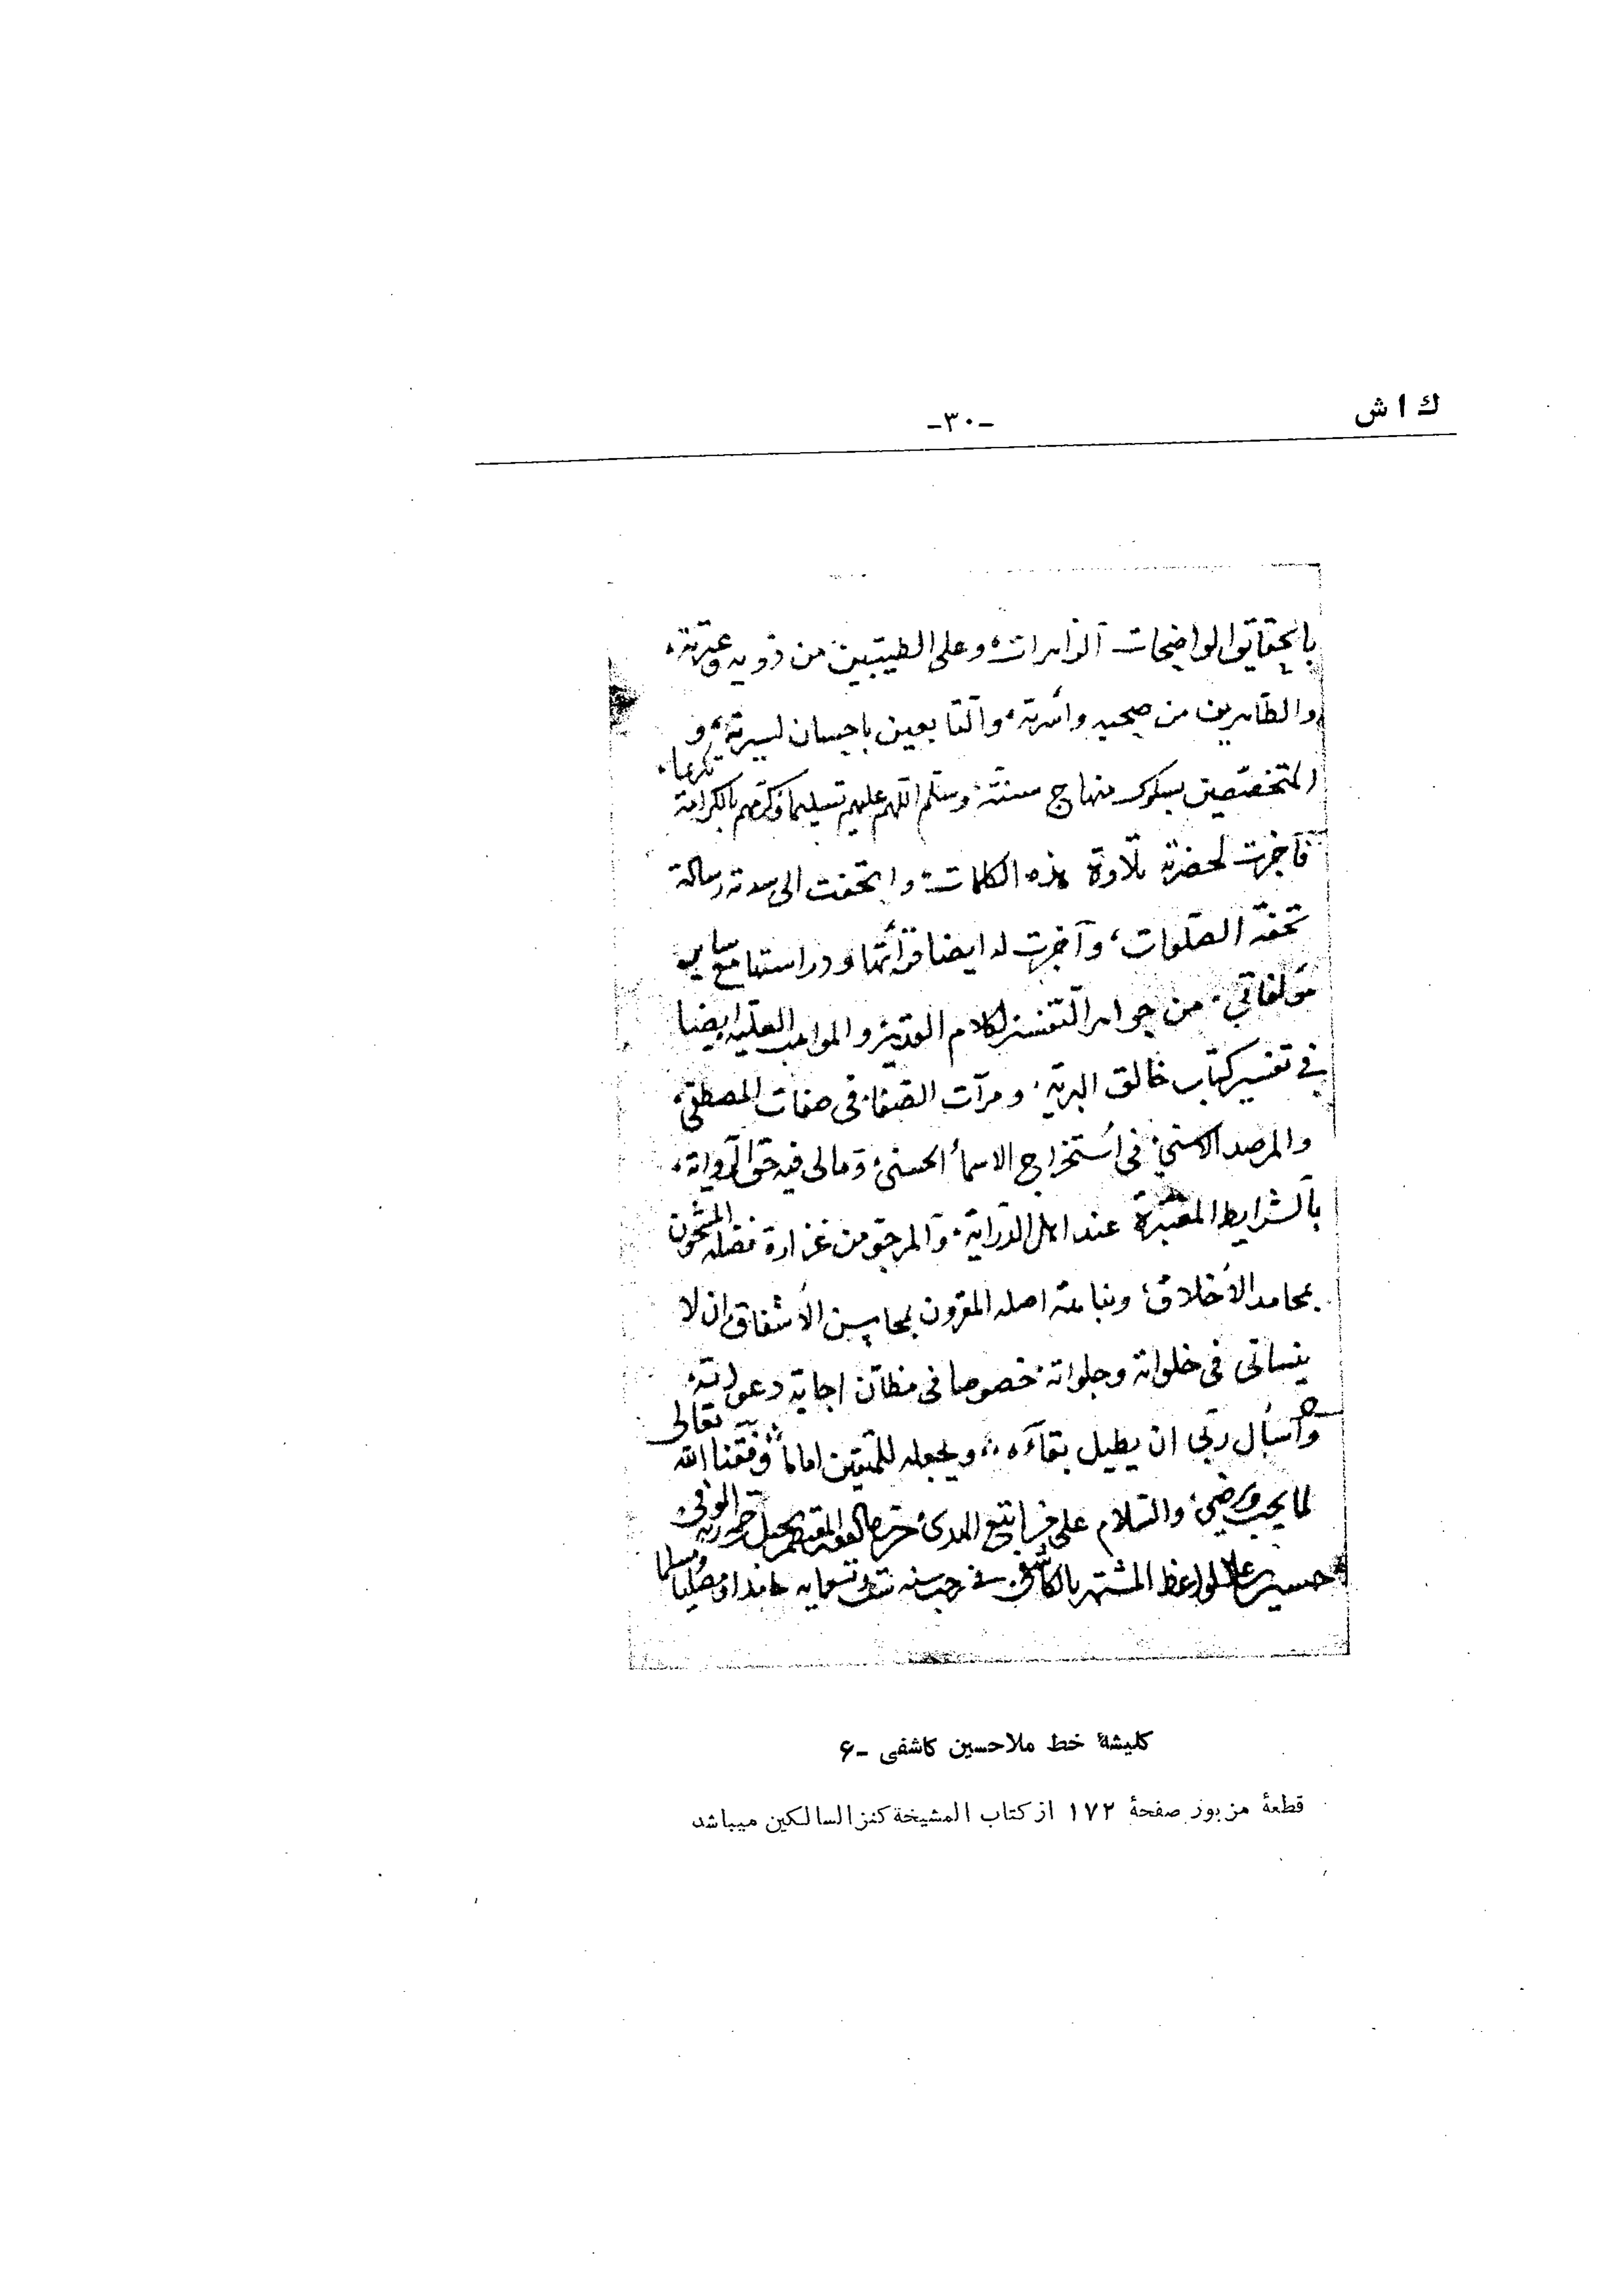 ك ا ش
-۳۰-
بالحقایق الواضحات الزاهرات وعلى الطیبین من ذویه وعترته
والطاهرین من صحبه واسرته والتابعین باحسان لسیرته و
المتخصصین بسلوک منهاج سنته وسلم اللهم علیهم تسلیما وکرمهم بالکرامة تکریما
فاجزت لحضرته تلاوة هذه الکلمات واتحفت الى سدته رسالة
تحفة الصلوات، وآجزت له ایضا قرائتها ودراستها مع سایر
مؤلفاتی من جواهر التفسیر لکلام القدیر والمواهب العلیه ایضا
فی تفسیر کتاب خالق البریه ومرآت الصفا فی صفات المصطفى
والمرصد الاسنى فی استخراج الاسمأ الحسنى ومالى فیه حق الروایة
بالشرایط المعتبرة عند اهل الدرایة والمرجو من غزارة فضله المشحون
بمحامد الأخلاق ونباهة اصله المقرون بمحاسن الأشفاق ان لا
ینسانی فی خلواته وجلواته خصوصا فی مظان اجابة دعواته
وأسأل ربی ان یطیل بقاءه ویجعله للمتقین اماما وفقنا الله تعالى
لما یحب ویرضى والسلام على من اتبع الهدى حرره الفقیر
حسین الواعظ المشتهر بالکاشفی فی رجب سنه وتسعمایه حامدا ومصلیا ومسلما
کلیشهٔ خط ملاحسین کاشفی -۶
قطعهٔ مزبور صفحهٔ ۱۷۲ از کتاب المشیخة کنز السالکین میباشد